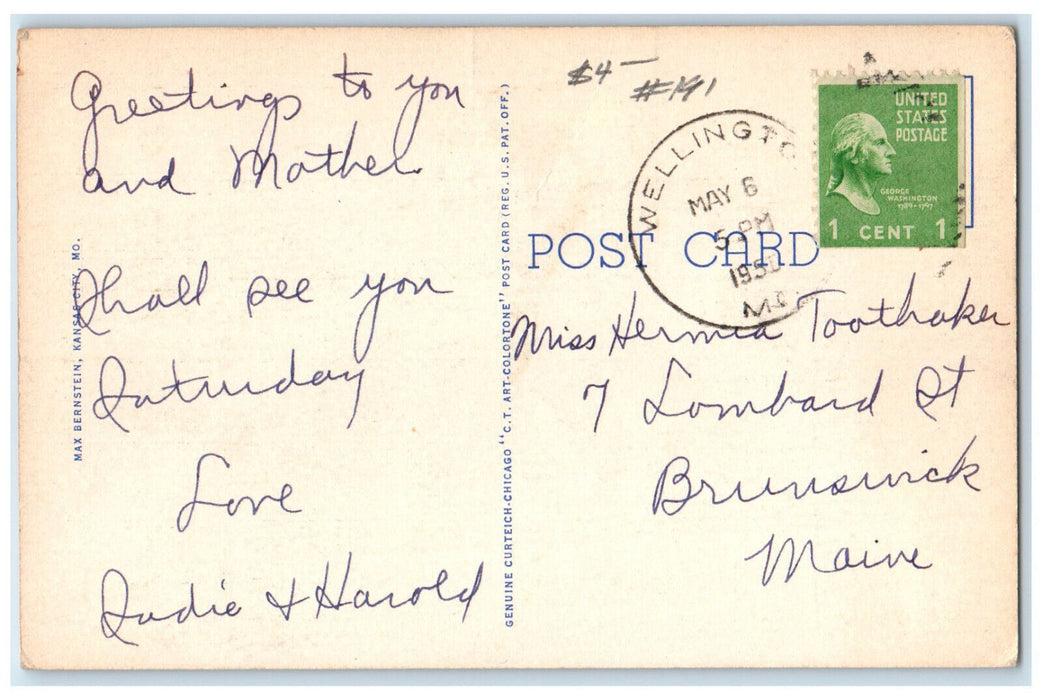 Greetings to you
and Mother.
Shall see you
Saturday
Love
Sadie & Harold
MAX BERNSTEIN, KANSAS CITY, MO.
GENUINE CURTEICH-CHICAGO "C.T. ART-COLORTONE" POST CARD (REG. U.S. PAT. OFF.)
$4-
#191
WELLINGTO
MAY 6
5 PM
MO.
UNITED
STATES
POSTAGE
GEORGE
WASHINGTON
1789-1797
1 CENT 1
POST CARD
Miss Hermia Toothaker
7 Lombard St
Brunswick
Maine